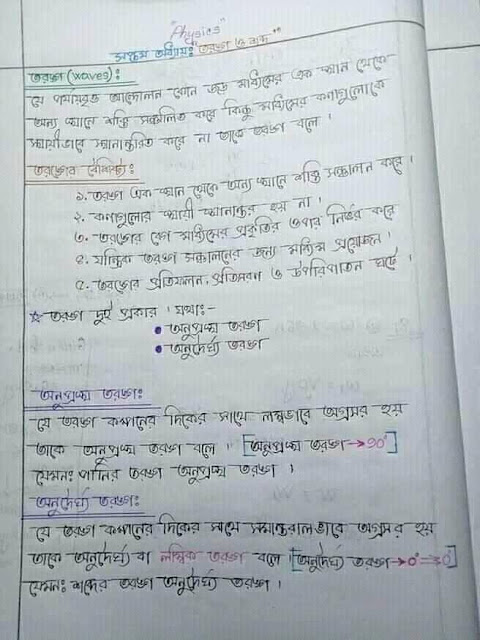 "Physics"
সপ্তম অধ্যায়: "তরঙ্গ ও শব্দ"
তরঙ্গ (waves):
যে পর্যাবৃত্ত আন্দোলন কোন জড় মাধ্যমের এক স্থান থেকে
অন্য স্থানে শক্তি সঞ্চালিত করে কিন্তু মাধ্যমের কণাগুলোকে
স্থায়ীভাবে স্থানান্তরিত করে না তাকে তরঙ্গ বলে ।
তরঙ্গের বৈশিষ্ট্য:
১. তরঙ্গ এক স্থান থেকে অন্য স্থানে শক্তি সঞ্চালন করে ।
২. কণাগুলোর স্থায়ী স্থানান্তর হয় না ।
৩. তরঙ্গের বেগ মাধ্যমের প্রকৃতির ওপর নির্ভর করে
৪. যান্ত্রিক তরঙ্গ সঞ্চালনের জন্য মাধ্যম প্রয়োজন ।
৫. তরঙ্গের প্রতিফলন, প্রতিসরণ ও উপরিপাতন ঘটে ।
☆ তরঙ্গ দুই প্রকার । যথা:-
• অনুপ্রস্থ তরঙ্গ
• অনুদৈর্ঘ্য তরঙ্গ
অনুপ্রস্থ তরঙ্গ:
যে তরঙ্গ কম্পনের দিকের সাথে লম্বভাবে অগ্রসর হয়
তাকে অনুপ্রস্থ তরঙ্গ বলে । [অনুপ্রস্থ তরঙ্গ → 90°]
যেমন: পানির তরঙ্গ অনুপ্রস্থ তরঙ্গ ।
অনুদৈর্ঘ্য তরঙ্গ:
যে তরঙ্গ কম্পনের দিকের সাথে সমান্তরালভাবে অগ্রসর হয়
তাকে অনুদৈর্ঘ্য বা লম্বিক তরঙ্গ বলে । [অনুদৈর্ঘ্য তরঙ্গ → 0°]
যেমন: শব্দের তরঙ্গ অনুদৈর্ঘ্য তরঙ্গ ।